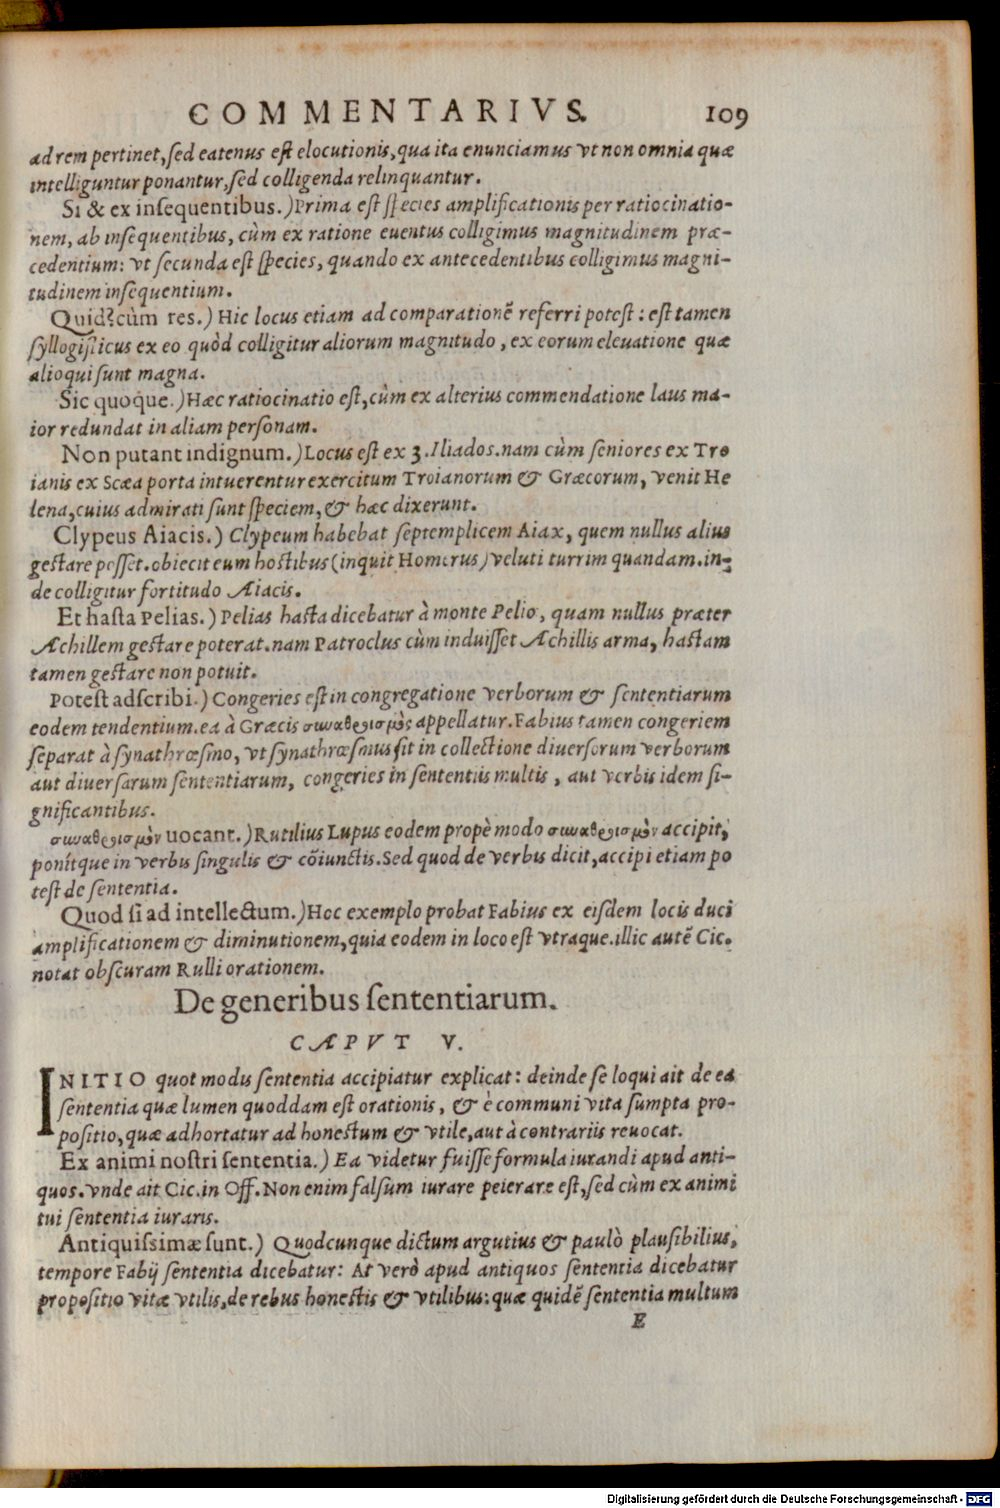 COMMENTARIVS. 109
ad rem pertinet, sed eatenus est elocutionis, qua ita enunciamus vt non omnia quæ
intelliguntur ponantur, sed colligenda relinquantur.
Si & ex insequentibus.) Prima est species amplificationis per ratiocinatio-
nem, ab insequentibus, cùm ex ratione euentus colligimus magnitudinem præ-
cedentium: vt secunda est species, quando ex antecedentibus colligimus magni-
tudinem insequentium.
Quid? cùm res.) Hic locus etiam ad comparationẽ referri potest: est tamen
syllogisticus ex eo quòd colligitur aliorum magnitudo, ex eorum eleuatione quæ
alioqui sunt magna.
Sic quoque.) Hæc ratiocinatio est, cùm ex alterius commendatione laus ma-
ior redundat in aliam personam.
Non putant indignum.) Locus est ex 3. Iliados. nam cùm seniores ex Tro
ianis ex Scæa porta intuerentur exercitum Troianorum & Græcorum, venit He
lena, cuius admirati sunt speciem, & hæc dixerunt.
Clypeus Aiacis.) Clypeum habebat septemplicem Aiax, quem nullus alius
gestare posset. obiecit eum hostibus (inquit Homerus) veluti turrim quandam. in-
de colligitur fortitudo Aiacis.
Et hasta Pelias.) Pelias hasta dicebatur à monte Pelio, quam nullus præter
Achillem gestare poterat. nam Patroclus cùm induisset Achillis arma, hastam
tamen gestare non potuit.
Potest adscribi.) Congeries est in congregatione verborum & sententiarum
eodem tendentium. ea à Græcis συναθροισμὸς appellatur. Fabius tamen congeriem
separat à synathrœsmo, vt synathrœsmus sit in collectione diuersorum verborum
aut diuersarum sententiarum, congeries in sententiis multis, aut verbis idem si-
gnificantibus.
συναθροισμὸν uocant.) Rutilius Lupus eodem propè modo συναθροισμὸν accipit,
ponítque in verbis singulis & cõiunctis. Sed quod de verbis dicit, accipi etiam po
test de sententia.
Quod si ad intellectum.) Hoc exemplo probat Fabius ex eisdem locis duci
amplificationem & diminutionem, quia eodem in loco est vtraque. illic autẽ Cic.
notat obscuram Rulli orationem.
De generibus sententiarum.
CAPVT V.
INITIO quot modis sententia accipiatur explicat: deinde se loqui ait de ea
sententia quæ lumen quoddam est orationis, & è communi vita sumpta pro-
positio, quæ adhortatur ad honestum & vtile, aut à contrariis reuocat.
Ex animi nostri sententia.) Ea videtur fuisse formula iurandi apud anti-
quos. vnde ait Cic. in Off. Non enim falsum iurare peierare est, sed cùm ex animi
tui sententia iuraris.
Antiquissimæ sunt.) Quodcunque dictum argutius & paulò plausibilius,
tempore Fabij sententia dicebatur: At verò apud antiquos sententia dicebatur
propositio vitæ vtilis, de rebus honestis & vtilibus: quæ quidẽ sententia multum
E
Digitalisierung gefördert durch die Deutsche Forschungsgemeinschaft - DFG